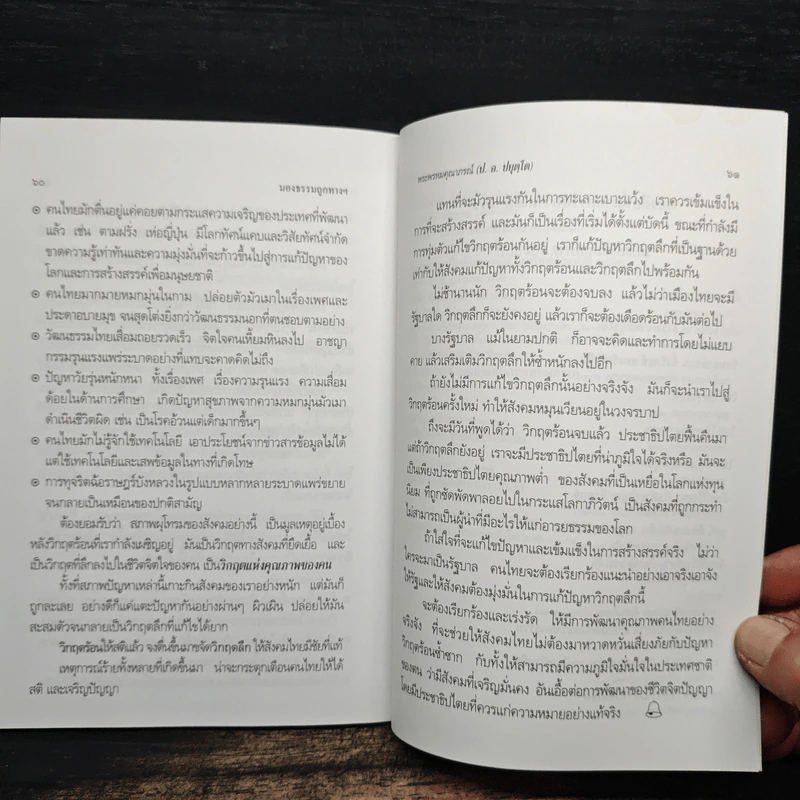 ๖๐ มองธรรมถูกทางฯ
๏ คนไทยมักตื่นอยู่แค่คอยตามกระแสความเจริญของประเทศที่พัฒนา
แล้ว เช่น ตามฝรั่ง เห่อญี่ปุ่น มีโลกทัศน์แคบและวิสัยทัศน์จำกัด
ขาดความรู้เท่าทันและความมุ่งมั่นที่จะก้าวขึ้นไปสู่การแก้ปัญหาของ
โลกและการสร้างสรรค์เพื่อมนุษยชาติ
๏ คนไทยมากมายหมกมุ่นในกาม ปล่อยตัวมัวเมาในเรื่องเพศและ
ประดาอบายมุข จนสุดโต่งยิ่งกว่าวัฒนธรรมนอกที่ตนชอบตามอย่าง
๏ วัฒนธรรมไทยเสื่อมถอยรวดเร็ว จิตใจคนเหี้ยมหืนลงไป อาชญา
กรรมรุนแรงแพร่ระบาดอย่างที่แทบจะคาดคิดไม่ถึง
๏ ปัญหาวัยรุ่นหนักหนา ทั้งเรื่องเพศ เรื่องความรุนแรง ความเสื่อม
ด้อยในด้านการศึกษา เกิดปัญหาสุขภาพจากความหมกมุ่นมัวเมา
ดำเนินชีวิตผิด เช่น เป็นโรคอ้วนแต่เด็กมากขึ้นๆ
๏ คนไทยมักไม่รู้จักใช้เทคโนโลยี เอาประโยชน์จากข่าวสารข้อมูลไม่ได้
แต่ใช้เทคโนโลยีและเสพข้อมูลในทางที่เกิดโทษ
๏ การทุจริตฉ้อราษฎร์บังหลวงในรูปแบบหลากหลายระบาดแพร่ขยาย
จนกลายเป็นเหมือนของปกติสามัญ
ต้องยอมรับว่า สภาพผุโทรมของสังคมอย่างนี้ เป็นมูลเหตุอยู่เบื้อง
หลังวิกฤตร้อนที่เรากำลังเผชิญอยู่ มันเป็นวิกฤตทางสังคมที่ยืดเยื้อ และ
เป็นวิกฤตที่ลึกลงไปในชีวิตจิตใจของคน เป็นวิกฤตแห่งคุณภาพของคน
ทั้งที่สภาพปัญหาเหล่านี้เกาะกินสังคมของเราอย่างหนัก แต่มันก็
ถูกละเลย อย่างดีก็แค่แตะปัญหากันอย่างผ่านๆ ผิวเผิน ปล่อยให้มัน
สะสมตัวจนกลายเป็นวิกฤตลึกที่แก้ไขได้ยาก
วิกฤตร้อนให้สติแล้ว จงตื่นขึ้นมาขจัดวิกฤตลึก ให้สังคมไทยมีชัยที่แท้
เหตุการณ์ร้ายทั้งหลายที่เกิดขึ้นมา น่าจะกระตุกเตือนคนไทยให้ได้
สติ และเจริญปัญญา
พระพรหมคุณาภรณ์ (ป. อ. ปยุตฺโต) ๖๑
แทนที่จะมัวรุนแรงกันในการทะเลาะเบาะแว้ง เราควรเข้มแข็งใน
การที่จะสร้างสรรค์ และมันก็เป็นเรื่องที่เริ่มได้ตั้งแต่บัดนี้ ขณะที่กำลังมี
การทุ่มตัวแก้ไขวิกฤตร้อนกันอยู่ เราก็แก้ปัญหาวิกฤตลึกที่เป็นฐานด้วย
เท่ากับให้สังคมแก้ปัญหาทั้งวิกฤตร้อนและวิกฤตลึกไปพร้อมกัน
ไม่ช้านานนัก วิกฤตร้อนจะต้องจบลง แล้วไม่ว่าเมืองไทยจะมี
รัฐบาลใด วิกฤตลึกก็จะยังคงอยู่ แล้วเราก็จะต้องเดือดร้อนกับมันต่อไป
บางรัฐบาล แม้ในยามปกติ ก็อาจจะคิดและทำการโดยไม่แยบ
คาย แล้วเสริมเติมวิกฤตลึกให้ซ้ำหนักลงไปอีก
ถ้ายังไม่มีการแก้ไขวิกฤตลึกนั้นอย่างจริงจัง มันก็จะนำเราไปสู่
วิกฤตร้อนครั้งใหม่ ทำให้สังคมหมุนเวียนอยู่ในวงจรบาป
ถึงจะมีวันที่พูดได้ว่า วิกฤตร้อนจบแล้ว ประชาธิปไตยฟื้นคืนมา
แต่ถ้าวิกฤตลึกยังอยู่ เราจะมีประชาธิปไตยที่น่าภูมิใจได้จริงหรือ มันจะ
เป็นเพียงประชาธิปไตยคุณภาพต่ำ ของสังคมที่เป็นเหยื่อในโลกแห่งทุน
นิยม ที่ถูกซัดพัดพาลอยไปในกระแสโลกาภิวัตน์ เป็นสังคมที่ถูกกระทำ
ไม่สามารถเป็นผู้นำที่มีอะไรให้แก่อารยธรรมของโลก
ถ้าใส่ใจที่จะแก้ไขปัญหาและเข้มแข็งในการสร้างสรรค์จริง ไม่ว่า
ใครจะมาเป็นรัฐบาล คนไทยจะต้องเรียกร้องแนะนำอย่างเอาจริงเอาจัง
ให้รัฐและให้สังคมต้องมุ่งมั่นในการแก้ปัญหาวิกฤตลึกนี้
จะต้องเรียกร้องและเร่งรัด ให้มีการพัฒนาคุณภาพคนไทยอย่าง
จริงจัง ที่จะช่วยให้สังคมไทยไม่ต้องมาหวาดหวั่นเสี่ยงภัยกับปัญหา
วิกฤตร้อนซ้ำซาก กับทั้งให้สามารถมีความภูมิใจมั่นใจในประเทศชาติ
ของตน ว่ามีสังคมที่เจริญมั่นคง อันเอื้อต่อการพัฒนาของชีวิตจิตปัญญา
โดยมีประชาธิปไตยที่ควรแก่ความหมายอย่างแท้จริง